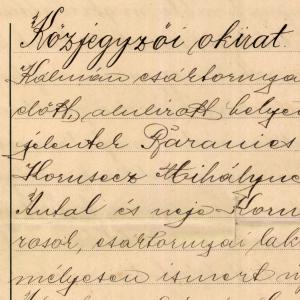 Közjegyzői okirat.
Kálmán csáktornya
előtt, alulirott helyen
jelentek Baranics
Hornsecz Mihályne
Antal és neje Horn
rosok, csáktornyai lak
mélyesen ismert ü